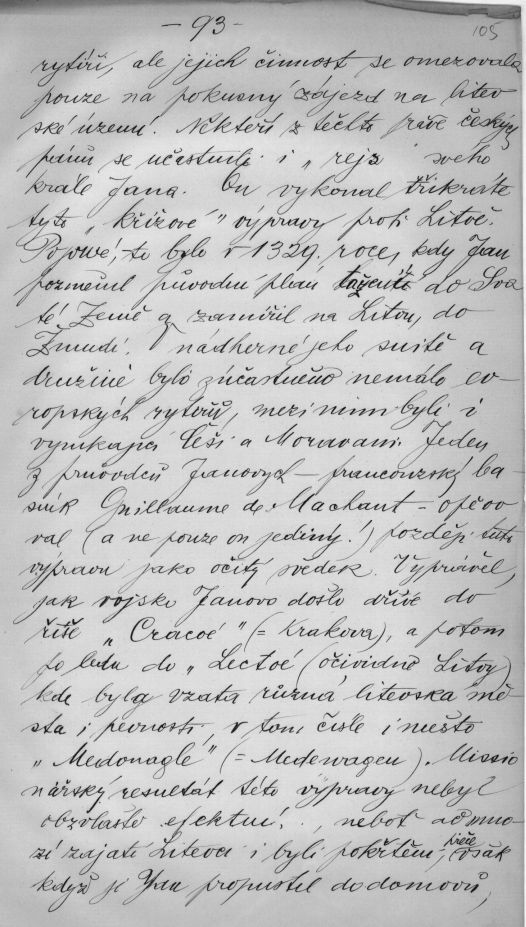 - 93 -
105
rytíři, ale jejich činnost se omezovala
pouze na pokusný zájezd na litev
ské území. Někteří z těchto právě českých
pánů se učastnili i „rejs" sveho
krále Jana. On vykonal třikráte
tyto „křížové" výpravy proti Litvě.
Poprvé, to bylo v 1329. roce, kdy Jan
pozměnil původní plán tažení do Sva
té Země a zamířil na Litvu, do
Žmudi. V nádherné jeho suitě a
družině bylo zúčastněno nemálo ev-
ropských rytířů, mezi nimi byli i
vynikající Češi a Moravani. Jeden
z průvodců Janových – francouzský ba-
sník Guillaume de Machaut – opěvo
val (a ne pouze on jediný!) později tuto
výpravu jako očitý svědek. Vyprávěl,
jak vojsko Janovo došlo dříve do
říše „Cracoé" (= Krakova), a potom
po ledu do „Lectoé (očividně Litvy)
kde byla vzata různá litevska mě-
sta i pevnosti, v tom čisle i město
„Medonagle" (= Medewagen). Missio
nářský resultát této výpravy nebyl
obzvlaště efektní., neboť ač mno-
zí zajatí Litevci i byli pokřtěni, přece však
když je Jan propustil do domovů,